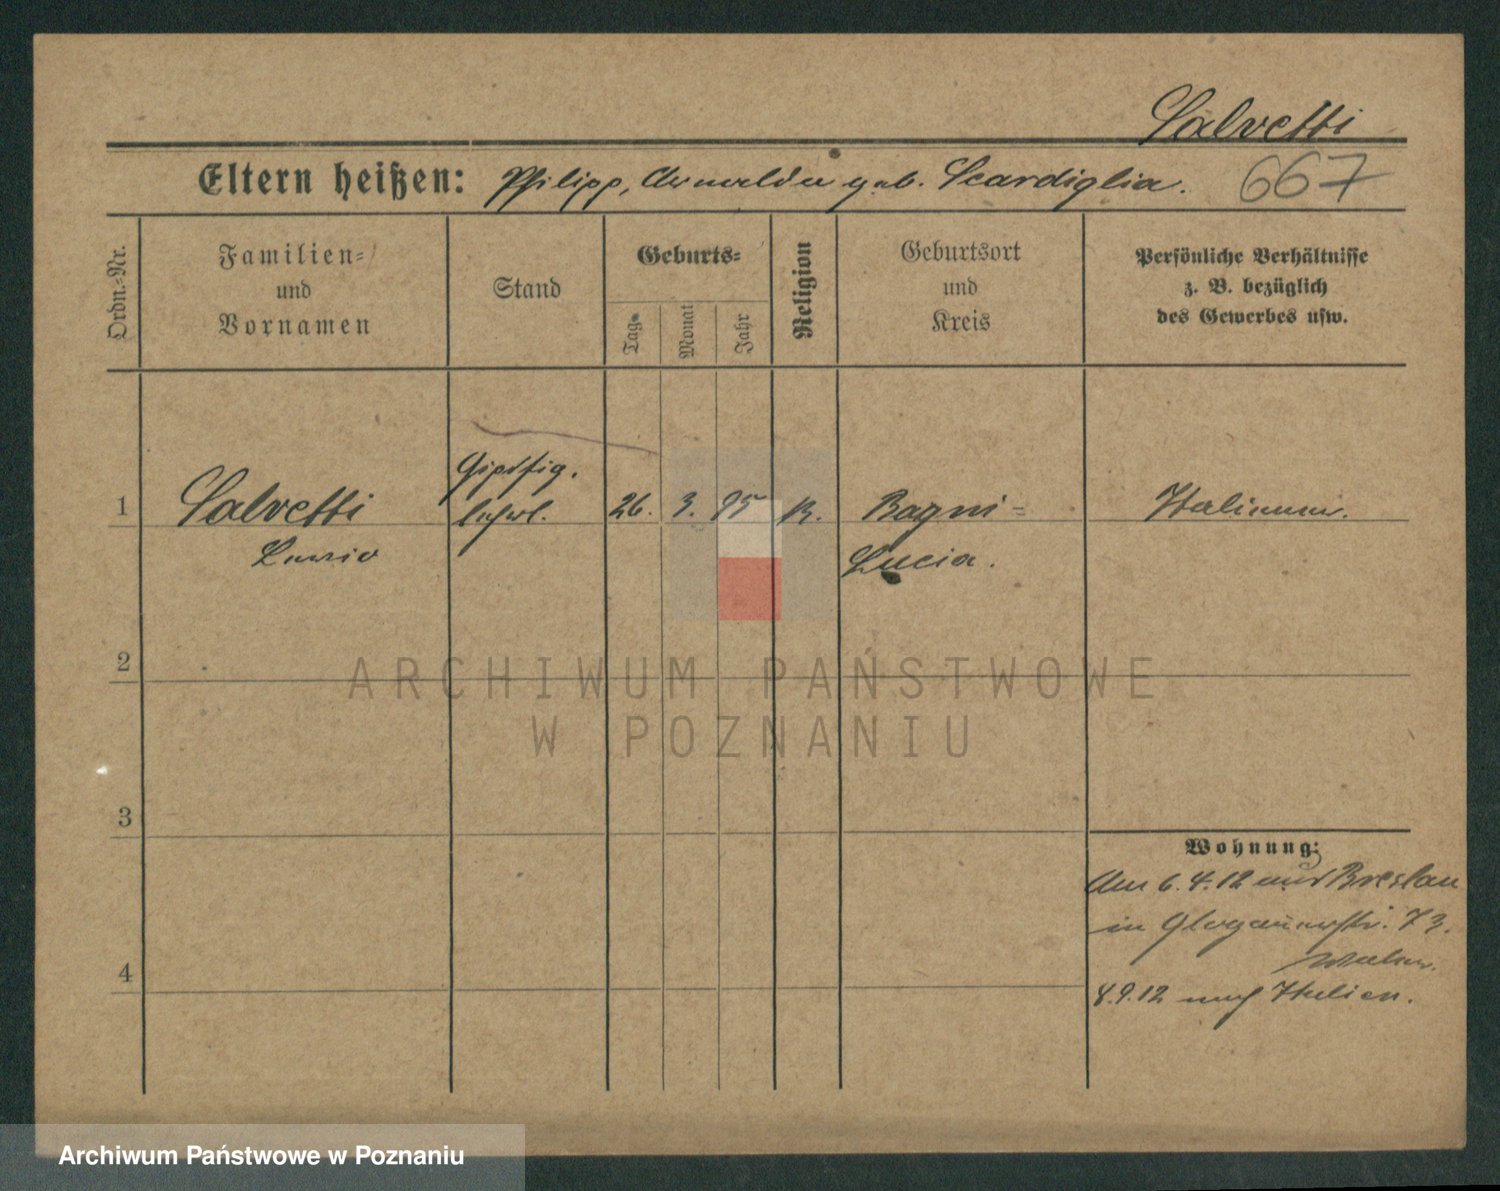 Salvetti
Eltern heißen: Philipp, Arnalda geb. Scardiglia. 667
Ordn.-Nr.
Familien-
und
Vornamen
Stand
Geburts-
Tag
Monat
Jahr
Religion
Geburtsort
und
Kreis
Persönliche Verhältnisse
z. B. bezüglich
des Gewerbes usw.
1 Salvetti
Gipsfig.
lehrl.
26. 3. 95 K. Bagni-
Lucia.
Italiener.
2
3
4
Wohnung:
Am 6.4.12 aus Breslau
in Glogauerstr. 73.
8.9.12 nach Italien.
ARCHIWUM PAŃSTWOWE
W POZNANIU
Archiwum Państwowe w Poznaniu